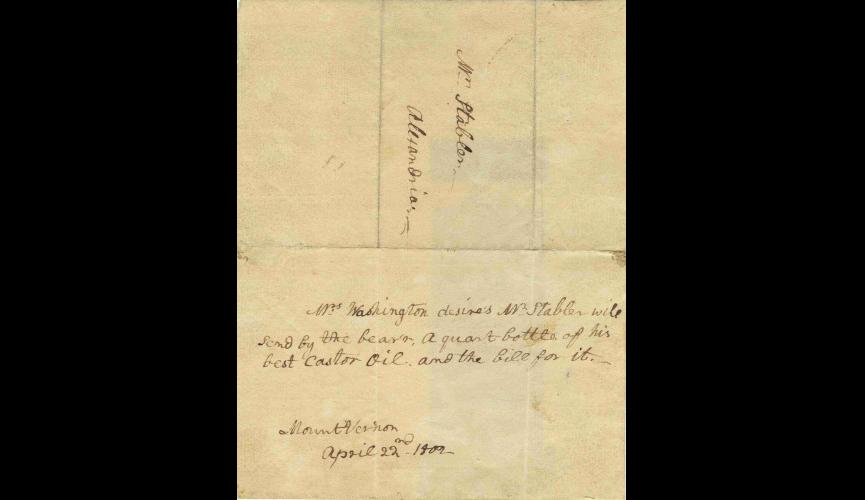 Mr. Stabler
Alexandria
Mrs Washington desire's Mr. Stabler will
send by the bear'r, A quart bottle of his
best Castor Oil. and the bill for it.
Mount Vernon
April 22nd 1802